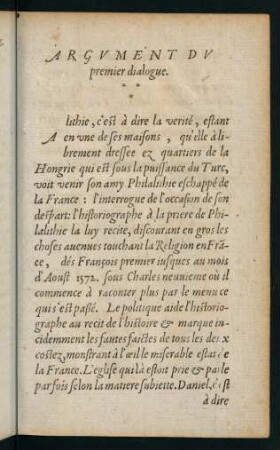 ARGVMENT DV
premier dialogue.
* *
*
Alithie, c'est à dire la verité, estant
en vne de ses maisons, qu'elle à li-
brement dressee ez quartiers de la
Hongrie qui est sous la puissance du Turc,
voit venir son amy Philalithie eschappé de
la France: l'interrogue de l'occasion de son
despart: l'historiographe à la priere de Phi-
lalithie la luy recite, discourant en gros les
choses auenues touchant la Religion en Frã-
ce, dés François premier iusques au mois
d'Aoust 1572. sous Charles neuuieme où il
commence à raconter plus par le menu ce
qui s'est passé. Le politique aide l'historio-
graphe au recit de l'histoire & marque in-
cidemment les fautes faictes de tous les deux
costez, monstrant à l'œil le miserable estat de
la France. L'eglise qui là estoit prie & parle
par fois selon la matiere subiette. Daniel, c'est
à dire